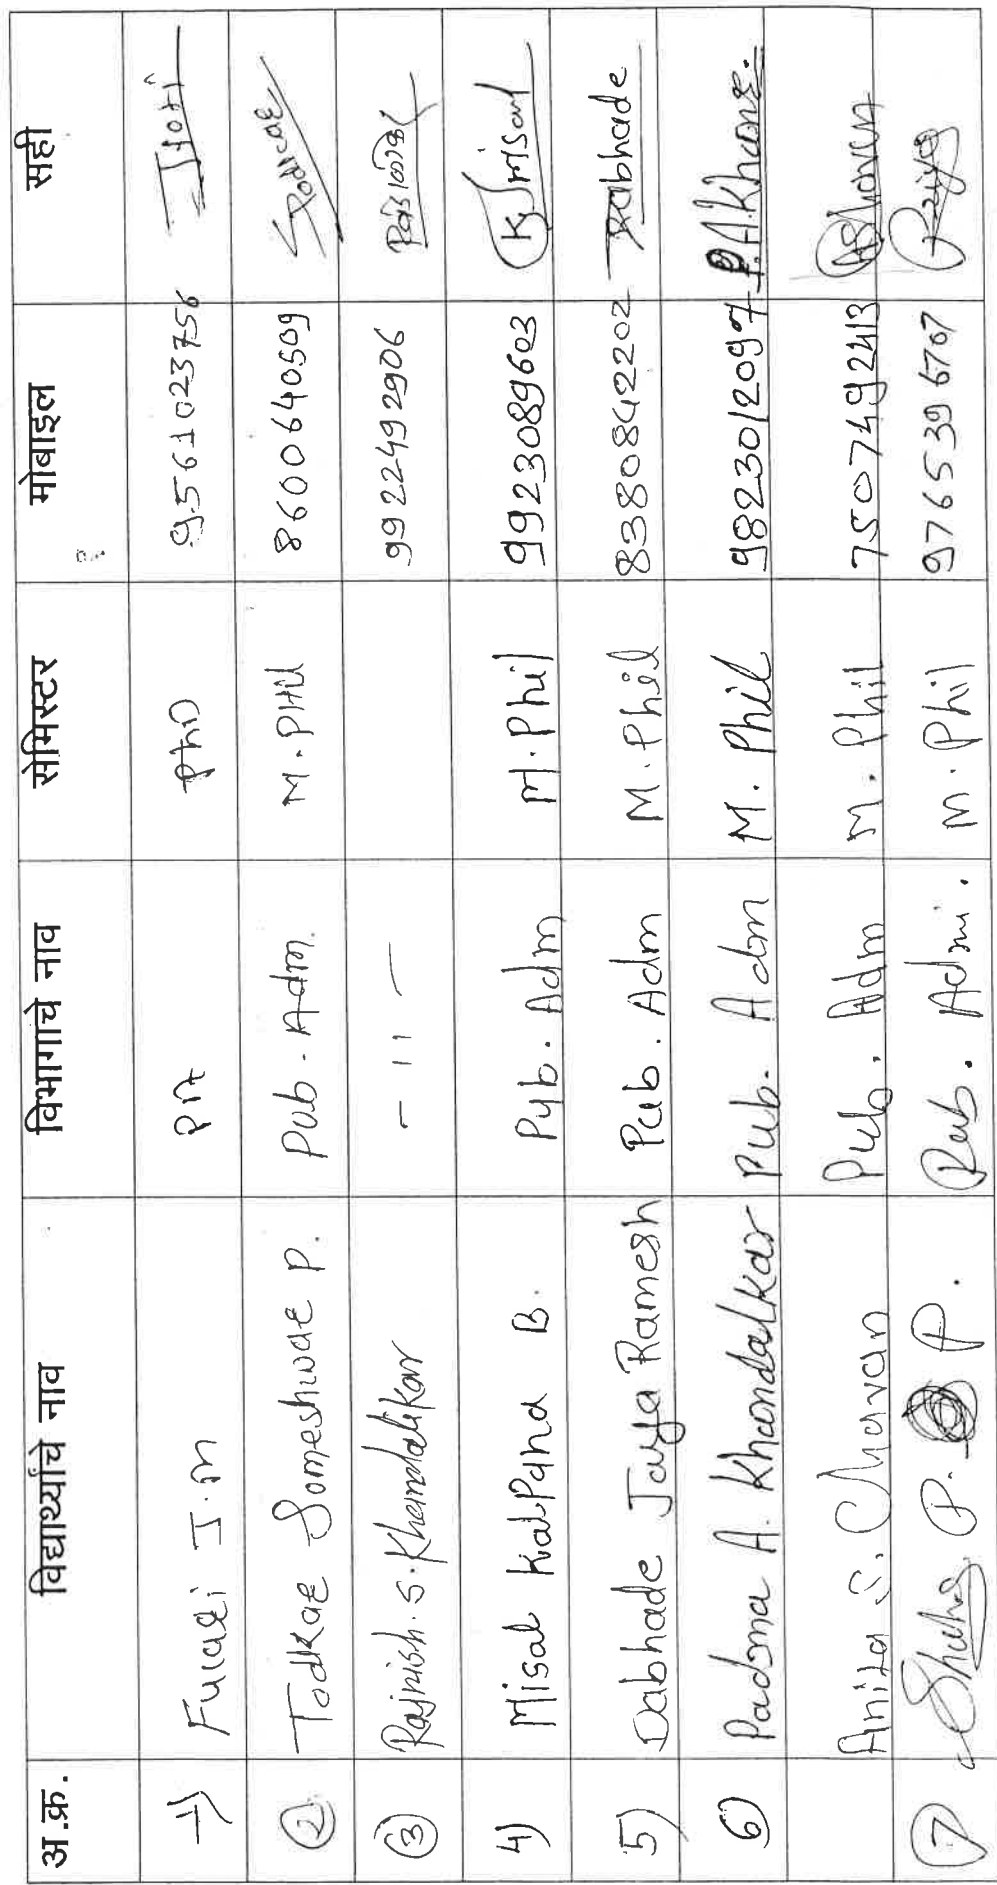 अ.क्र. विद्यार्थ्यांचे नाव विभागाचे नाव सेमिस्टर मोबाइल सही
1) J.M PA PhD 9561023756 Jyoti
2 Todkar Someshwar P. Pub. Adm. M.PHil 8600640509
3 Rajnish. S. Khandalikar - 11 - 9922492906
4) Misal Kalpana B. Pub. Adm M.Phil 9923089603 K Misal
5) Dabhade Jaya Ramesh Pub. Adm M.Phil 8380842202 Dabhade
6) Padma A. Khandalkar Pub. Adm M.Phil 9823012097 P.A.Khan
Anita S. Chavan Pub. Adm M.Phil 7507492413 AChavan
7 P. P. Pub. Admi. M.Phil 9765396707 Priya